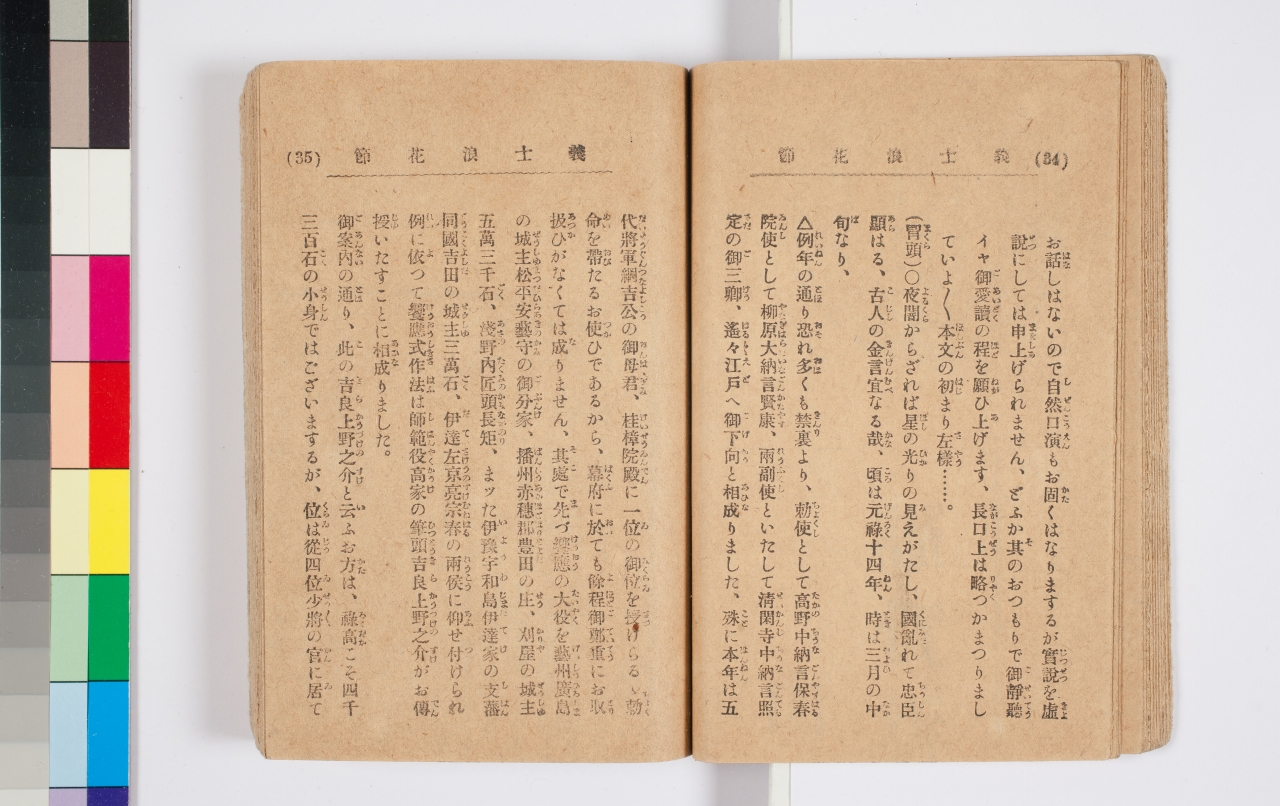 (34)
義士浪花節
お話しはないので自然口演もお固くはなりまするが實說を虛
說にしては申上げられません、どふか其のおつもりで御靜聽
イャ御愛讀の程を願ひ上げます、長口上は略つかまつりまし
ていよ〱本文の初まり左樣……。
(冐頭)〇夜闇からざれば星の光りの見えがたし、國亂れて忠臣
顯はる、古人の金言宜なる哉、頃は元祿十四年、時は三月の中
旬なり、
△例年の通り恐れ多くも禁裏より、勅使として高野中納言保春
院使として柳原大納言賢康、兩副使といたして淸閑寺中納言照
定の御三卿、遙々江戸へ御下向と相成りました、殊に本年は五
義士浪花節
(35)
代將軍綱吉公の御母君、桂樟院殿に一位の御位を授けらるゝ勅
命を帶たるお使ひであるから、幕府に於ても餘程御鄭重にお取
扱ひがなくては成りません、其處で先づ饗應の大役を藝州廣島
の城主松平安藝守の御分家、播州赤穗郡豊田の庄、刈屋の城主
五萬三千石、淺野內匠頭長矩、まッた伊豫宇和島伊達家の支藩
同國吉田の城主三萬石、伊達左京亮宗春の兩侯に仰せ付けられ
例に依つて饗應式作法は師範役高家の筆頭吉良上野之介がお傳
授いたすことに相成りました。
御案內の通り、此の吉良上野之介と云ふお方は、祿高こそ四千
三百石の小身ではございまするが、位は從四位少將の官に居て